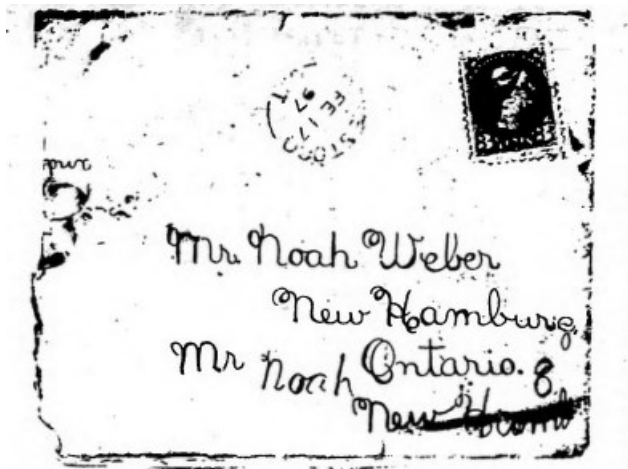 FE 17
97
Mr. Noah Weber
New Hamburg,
Ontario.
Mr Noah
New Hamb